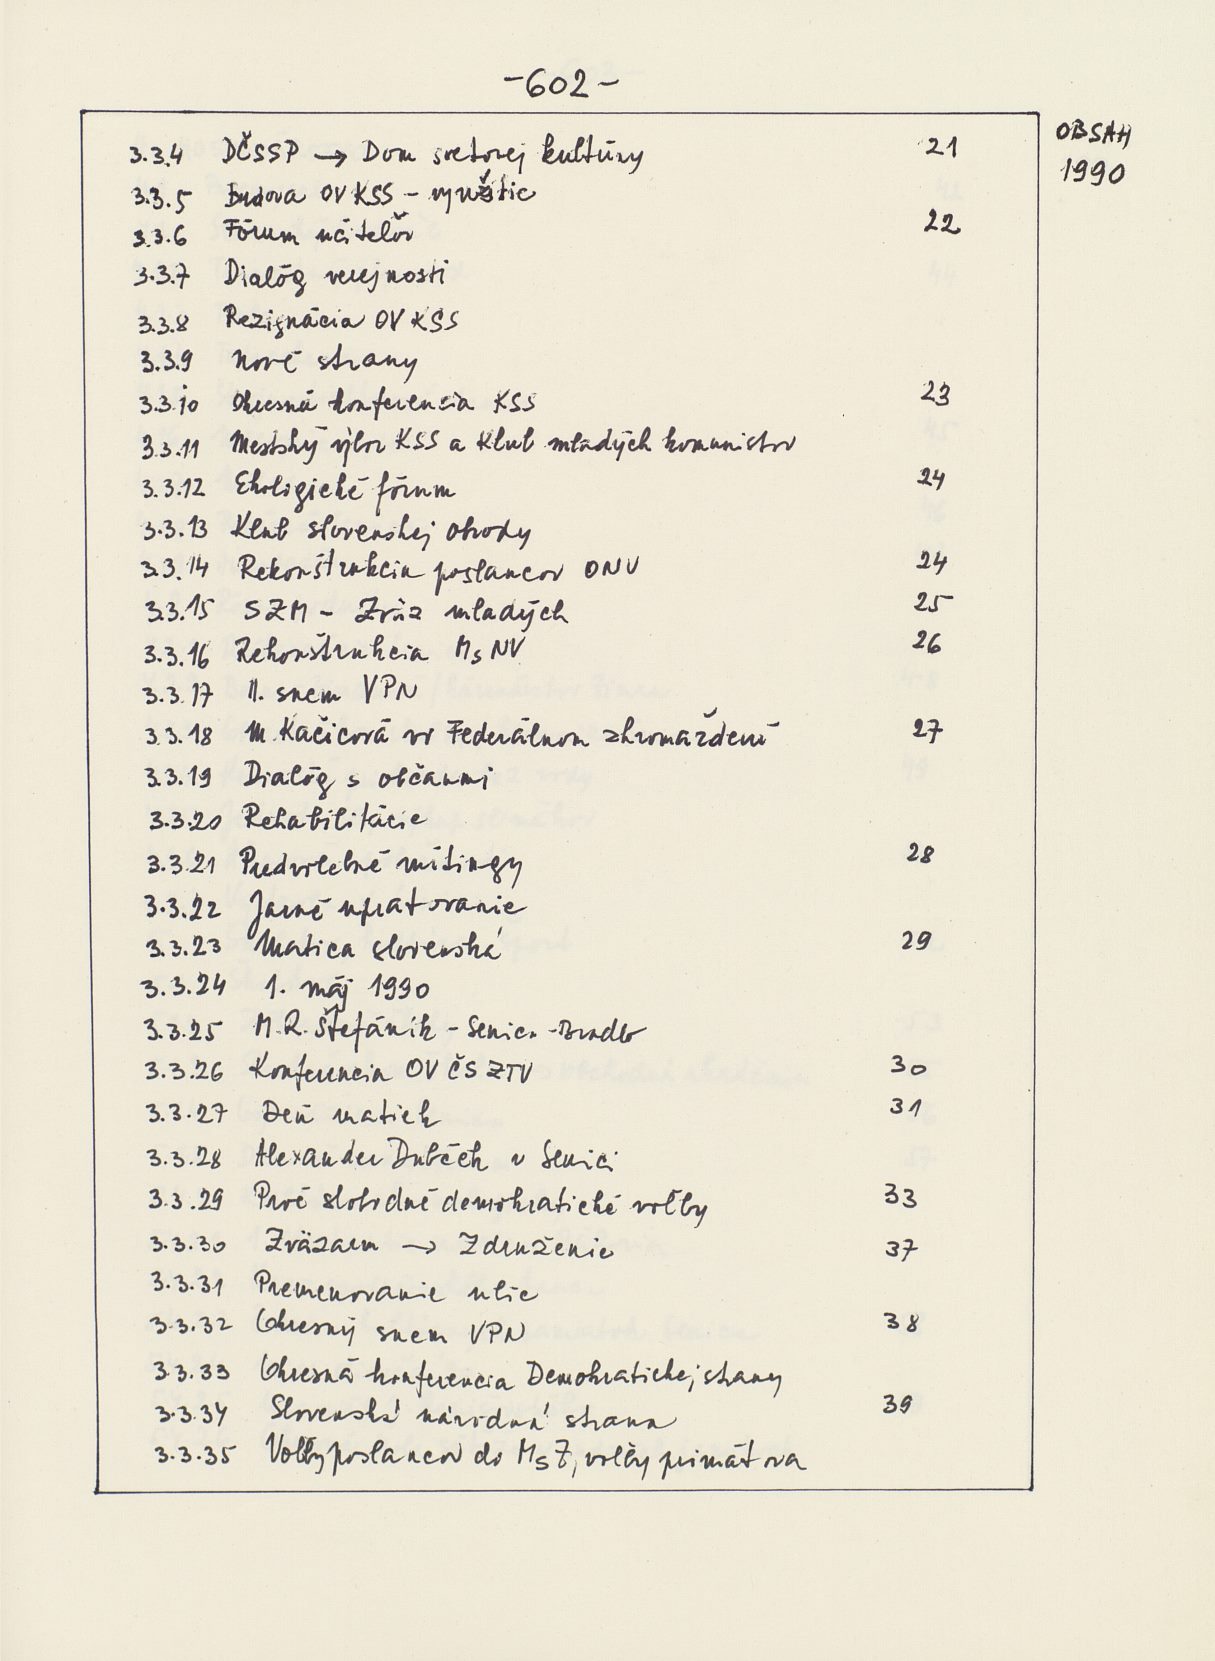 -602-
OBSAH
1990
3.3.4 DČSSP → Dom svetovej kultúry 21
3.3.5 Budova OV KSS - využitie
3.3.6 Fórum učiteľov 22
3.3.7 Dialóg verejnosti
3.3.8 Rezignácia OV KSS
3.3.9 Nové strany
3.3.10 Okresná konferencia KSS 23
3.3.11 Mestský výbor KSS a Klub mladých komunistov
3.3.12 Ekologické fórum 24
3.3.13 Klub slovenskej obrody
3.3.14 Rekonštrukcia poslancov ONV 24
3.3.15 SZM - Zväz mladých 25
3.3.16 Rekonštrukcia MsNV 26
3.3.17 II. snem VPN
3.3.18 M. Kačicová vo Federálnom zhromaždení 27
3.3.19 Dialóg s občanmi
3.3.20 Rehabilitácie
3.3.21 Predvolebné mítingy 28
3.3.22 Jarné upratovanie
3.3.23 Matica slovenská 29
3.3.24 1. máj 1990
3.3.25 M.R. Štefánik - Senica - Bradlo
3.3.26 Konferencia OV ČSZTV 30
3.3.27 Deň matiek 31
3.3.28 Alexander Dubček v Senici
3.3.29 Prvé slobodné demokratické voľby 33
3.3.30 Zväzarm → Združenie 37
3.3.31 Premenovanie ulíc
3.3.32 Okresný snem VPN 38
3.3.33 Okresná konferencia Demokratickej strany
3.3.34 Slovenská národná strana 39
3.3.35 Voľby poslancov do MsZ, voľby primátora